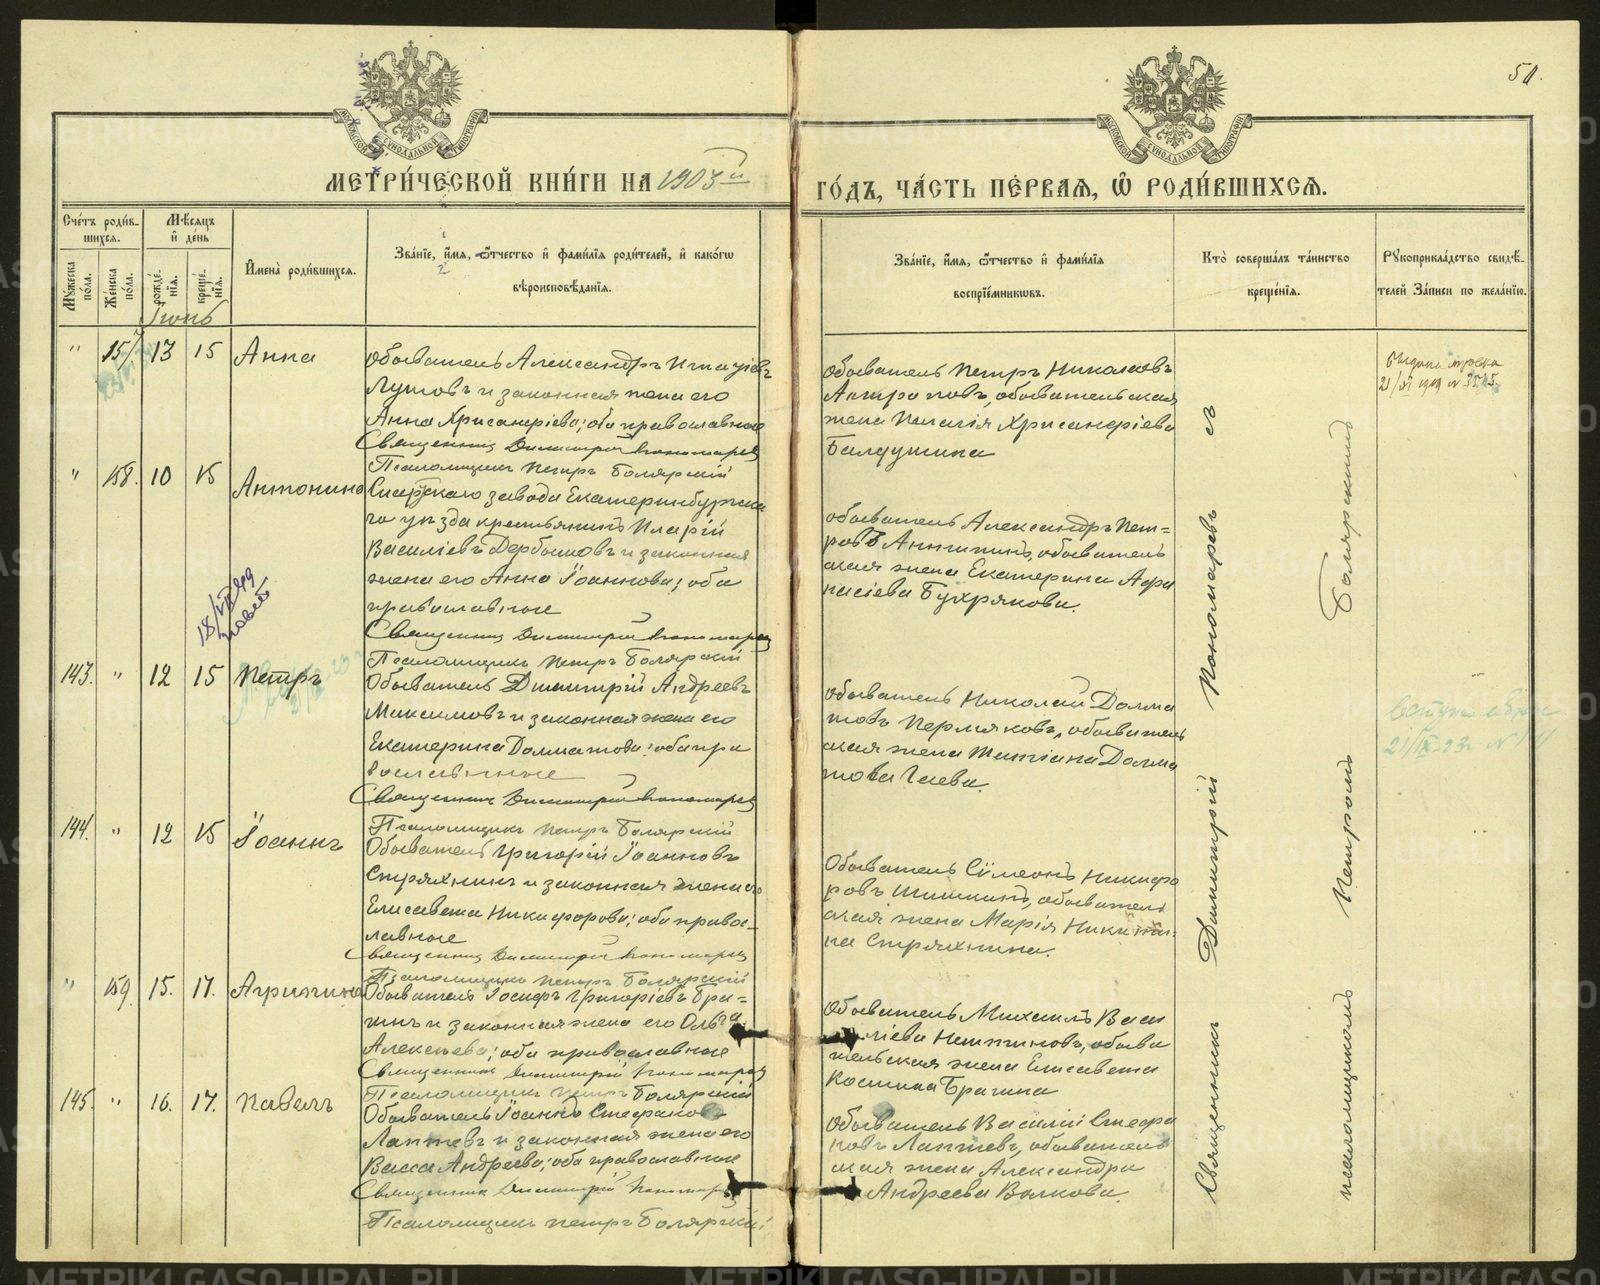 51.
МОСКОВСКОЙ СУНОДАЛЬНОЙ ТИПОГРАФІИ
МОСКОВСКОЙ СУНОДАЛЬНОЙ ТИПОГРАФІИ
МЕТРИ́ЧЕСКОЙ КНИ́ГИ НА 1903й
ГО́ДЪ, ЧА́СТЬ ПЕ́РВАЯ, Ѿ РОДИ́ВШИХСЯ.
Сче́тъ роди́в-
шихся.
Мѣ́сяцъ
и҆ де́нь
Мꙋ́жеска по́ла.
Же́нска по́ла.
рожде́-нїя.
креще́-нїя.
И҆мена̀ роди́вшихся.
Зва́нїе, и҆́мя, ѻ҆́тчество и҆ фами́лїя роди́телей, и҆ како́гѡ
вѣроисповѣ́данїя.
Зва́нїе, и҆́мя, ѻ҆́тчество и҆ фами́лїя
воспрїе́мникѡвъ.
Кто̀ соверша́лъ та́инство
креще́нїя.
Рꙋкоприкла́дство свидѣ́-
телей За́писи по жела́нїю.
Іюнь
" 157. 13 15 Анна
Обыватель Александръ Игнатіевъ
Лутовъ и законная жена его
Анна Хрисанфіева; оба православные
Священникъ Димитрій Пономаревъ
Псаломщикъ Петръ Болярскій
обыватель Петръ Николаевъ
Антроповъ, обывательская
жена Пелагія Хрисанфіева
Балдушина
21/XI 1919 №
" 158. 10 15 Антонина
Сысертскаго завода Екатеринбургска
го уѣзда крестьянинъ Иларій
Василіевъ Дербышовъ и законная
жена его Анна Іоаннова; оба
православные
Священникъ Димитрій Пономаревъ
Псаломщикъ Петръ Болярскій
обыватель Александръ Пет-
ровъ Аникинъ, обыватель
ская жена Екатерина Афа
насіева Бухрякова.
143. " 12 15 Петръ
Обыватель Дмитрій Андреевъ
Максимовъ и законная жена его
Екатерина Долматова; оба пра
вославные
Священникъ Димитрій Пономаревъ
Псаломщикъ Петръ Болярскій
обыватель Николай Долма
товъ Пермяковъ, обыватель
ская жена Татіана Долма
това Гаева.
144. " 12 15 Іоаннъ
Обыватель Григорій Іоанновъ
Стряхнинъ и законная жена его
Елисавета Никифорова; оба право-
лавные
Священникъ Димитрій Пономаревъ
Псаломщикъ Петръ Болярскій
Обыватель Сѵмеонъ Никифо
ровъ Шишкинъ, обыватель
ская жена Марія Никити-
на Стряхнина.
" 159. 15. 17. Агрипина
Обыватель Іосифъ Григоріевъ Бра-
гинъ и законная жена его Ольга
Алексѣева; оба православные
Священникъ Димитрій Пономаревъ
Псаломщикъ Петръ Болярскій
Обыватель Михаилъ Васи
ліевъ обыва
тельская жена Елисавета
Космина Брагина
145. " 16. 17. Павелъ
Обыватель Іоаннъ Стефановъ
Лаптевъ и законная жена его
Васса Андреева; оба православные
Священникъ Димитрій Пономаревъ
Псаломщикъ Петръ Болярскій
обыватель Василій Стефа
новъ Лаптевъ, обыватель
ская жена Александра
Андреева Волкова.
Священникъ Димитрій Пономаревъ съ
псаломщикомъ Петромъ Болярскимъ